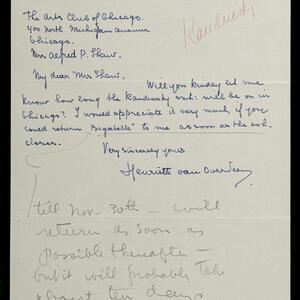 The Arts Club of Chicago.
400 North Michigan Avenue
Chicago.
Kandinsky
Mrs Alfred P. Shaw.
My dear Mrs. Shaw.
Will you kindly let me
know how long the Kandinsky exh: will be on in
Chicago? I would appreciate it very much, if you
could return "Bagatelle" to me as soon as the exh.
closes.
Very sincerely yours
Henriette van
till Nov. 30th — will
return as soon as
possible thereafter —
but it will probably take
about ten days